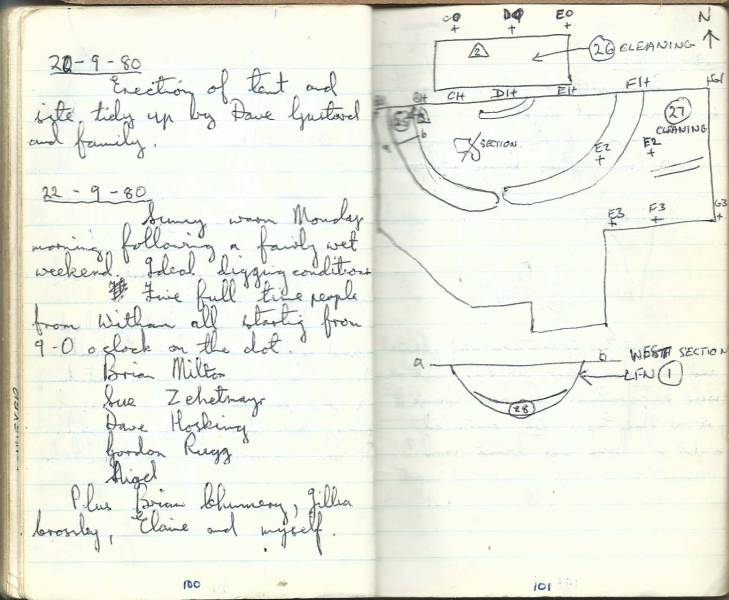 20-9-80
Erection of tent and
site tidy up by Dave
and family.
22-9-80
Sunny warm Monday
morning following a fairly wet
weekend. Ideal digging conditions
Five full time people
from Witham all starting from
9-0 o clock on the dot.
Brian Milton
Sue Zehetmayr
Dave Hosking
Gordon Rugg
Nigel
Plus Brian, Gillian
Crossley, Elaine and myself.
100
C0 D0 E0 N
2 26 CLEANING
C1+ D1+ E1+ F1+ G1
27
CLEANING
a b
SECTION
E2 E2
E3 F3 G3
a b WEST SECTION
LFN 1
28
101